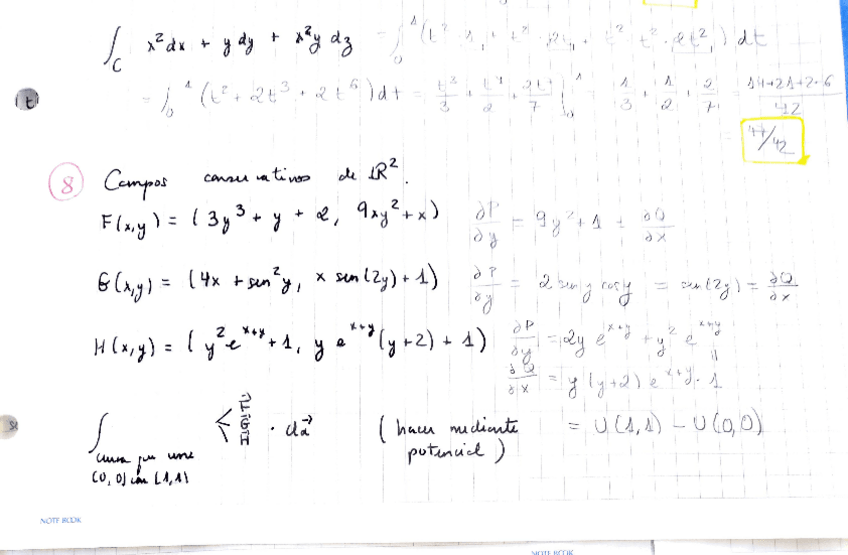 ∫_C x² dx + y dy + x²y dz = ∫₀¹ (t² · 1 + t² · 2t + t² · t² · 2t²) dt
= ∫₀¹ (t² + 2t³ + 2t⁶) dt = t³/3 + t⁴/2 + 2t⁷/7 |₀¹ = 1/3 + 1/2 + 2/7 = 14+21+2·6/42
(t)
47/42
⑧ Campos conservativos de ℝ².
F(x,y) = (3y³ + y + 2, 9xy² + x) ∂P/∂y = 9y² + 1 = ∂Q/∂x
G(x,y) = (4x + sen²y, x sen(2y) + 1) ∂P/∂y = 2 sen y cos y = sen(2y) = ∂Q/∂x
H(x,y) = (y²e^(x+y) + 1, y e^(x+y)(y+2) + 1) ∂P/∂y = 2y e^(x+y) + y² e^(x+y)
∂Q/∂x = y(y+2) e^(x+y) · 1
∫ < F⃗ G⃗ H⃗ · dα⃗ (hacer mediante potencial) = U(1,1) - U(0,0)
curva que une
(0,0) con (1,1)
NOTE BOOK
NOTE BOOK